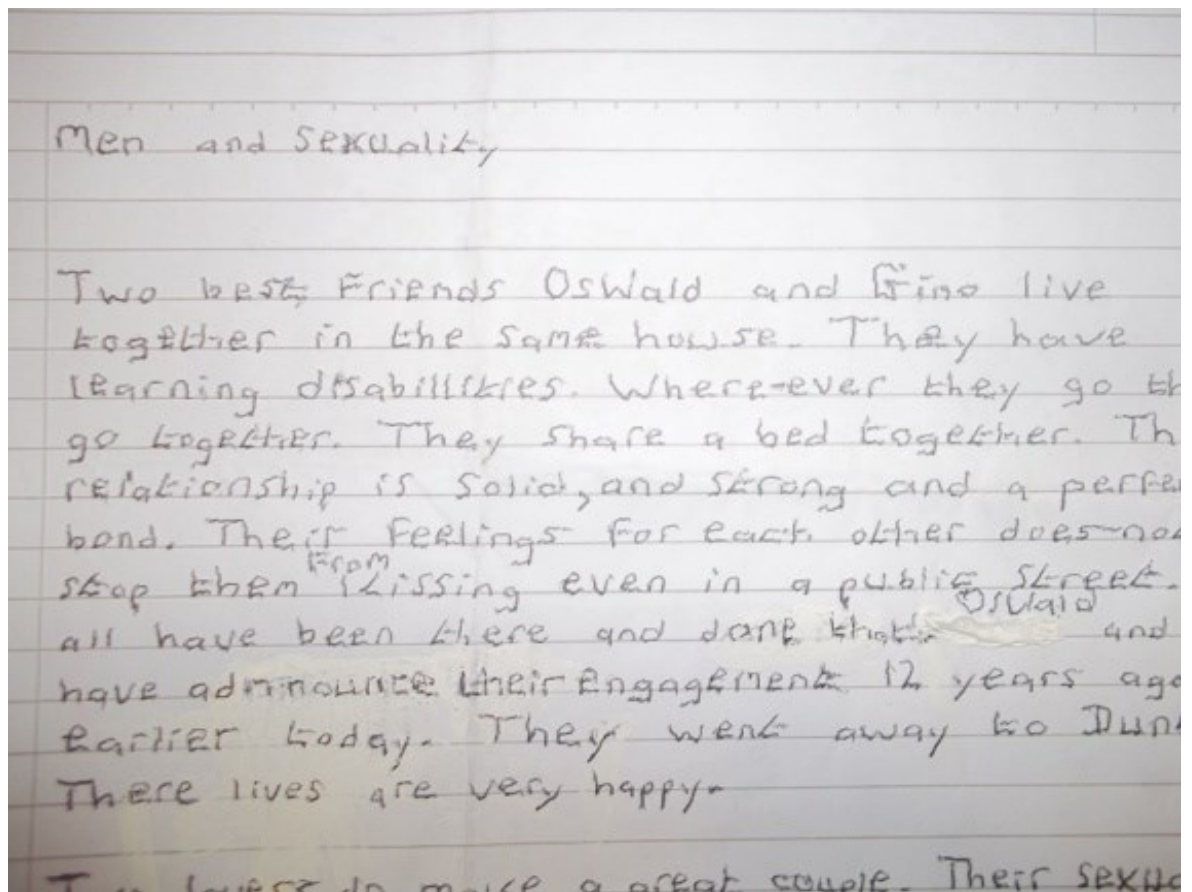 Men and Sexuality
Two best Friends Oswald and Gino live
together in the same house. They have
learning disabillities. Where-ever they go th
go together. They share a bed together. Th
relationship is solid, and strong and a perfe
bond. Their Feelings for each other does-not
From
stop them kissing even in a public street.
Oswald
all have been there and done that. and
have adnnounce their engagement 12 years ago
earlier today. They went away to Dun
There lives are very happy.
a great couple. Their sexu